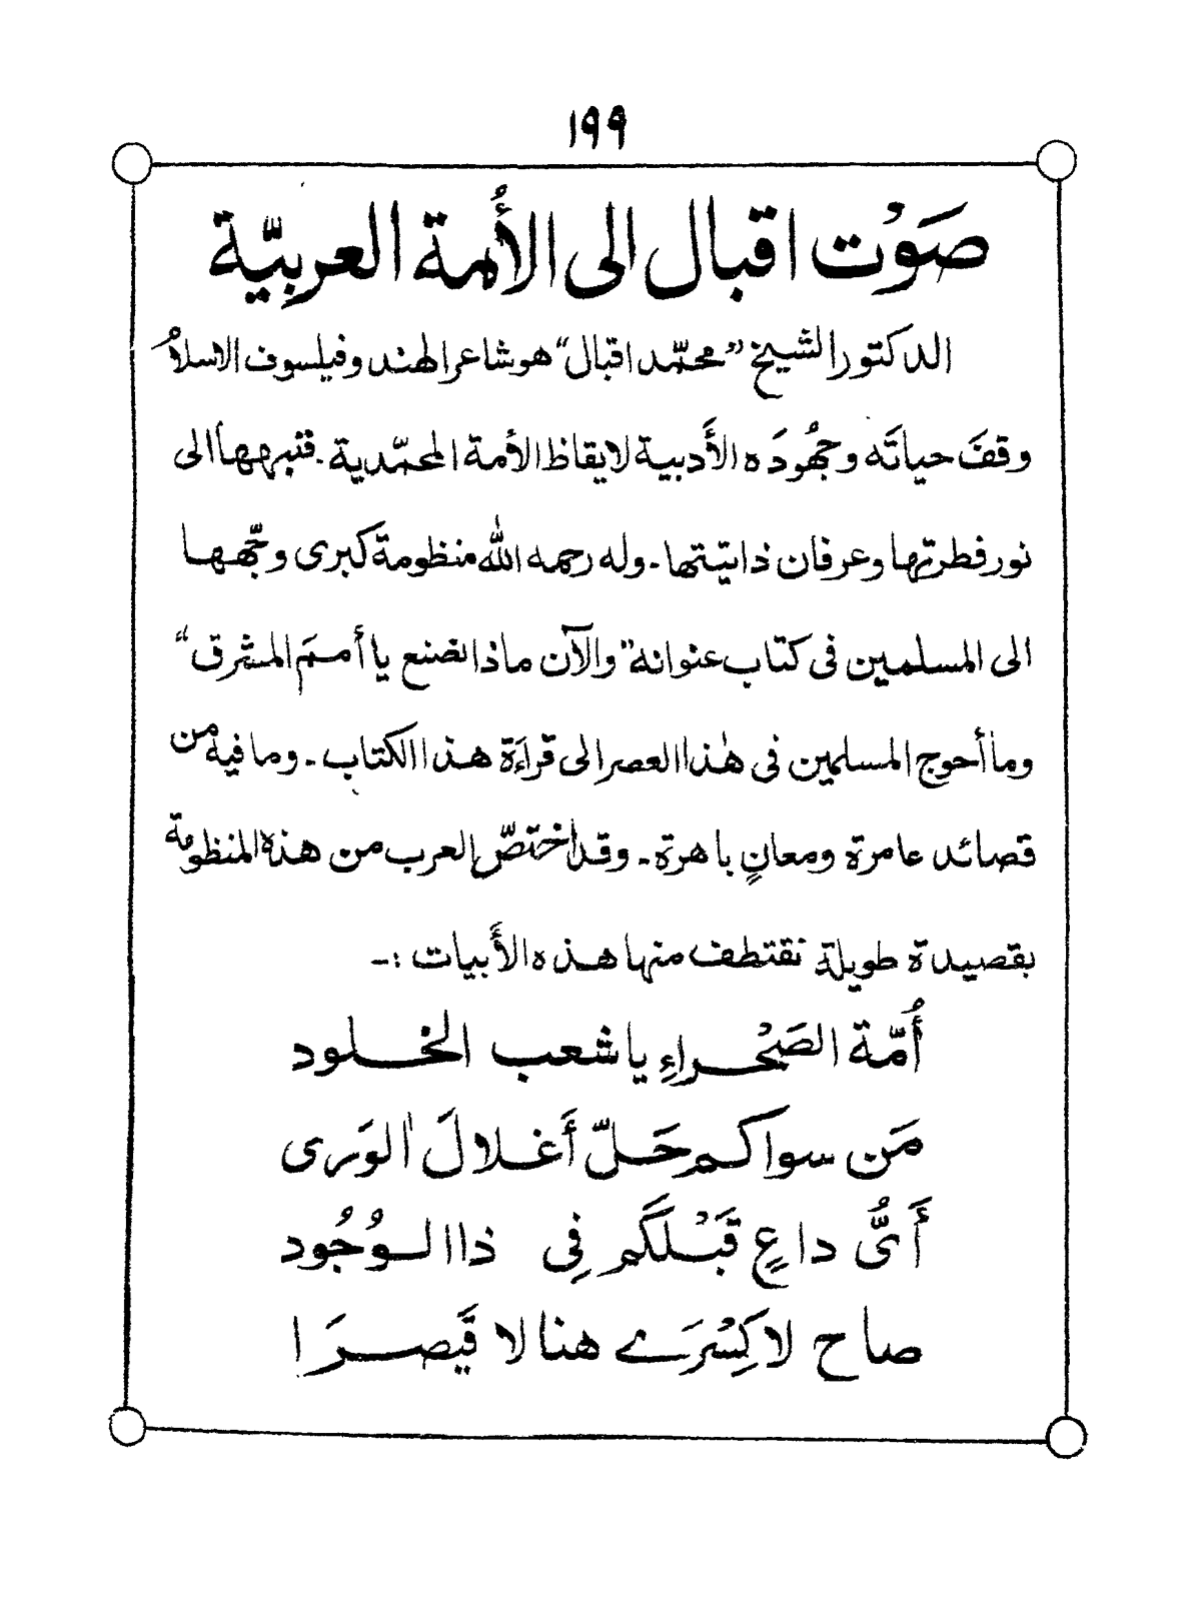 ١٩٩
صَوْت اقبال الى الأُمة العربِيّة
الدكتور الشيخ "محمّد اقبال" هو شاعر الهند وفيلسوف الاسلام
وقفَ حياتَه وجُهودَه الأَدبية لايقاظ الأمة المحمّدية. فنبهها الى
نور فطرتها وعرفان ذاتيّتها. وله رحمه الله منظومة كبرى وجّهها
الى المسلمين فى كتاب عنوانه "والآن ماذا نصنع يا أممَ المشرق"
وما أحوج المسلمين فى هٰذا العصر الى قراءَة هذا الكتاب. وما فيه من
قصائد عامرة ومعانٍ باهرة. وقد اختصّ العرب من هذه المنظومة
بقصيدة طويلة نقتطف منها هذه الأَبيات :-
أُمّة الصَحْراءِ يا شعب الخلود
مَن سواكم حَلّ أَغلالَ الوَرى
أَىُّ داعٍ قَبْلَكَم فِى ذا الوُجُود
صاح لا كِسْرَے هنا لا قَيصرَا